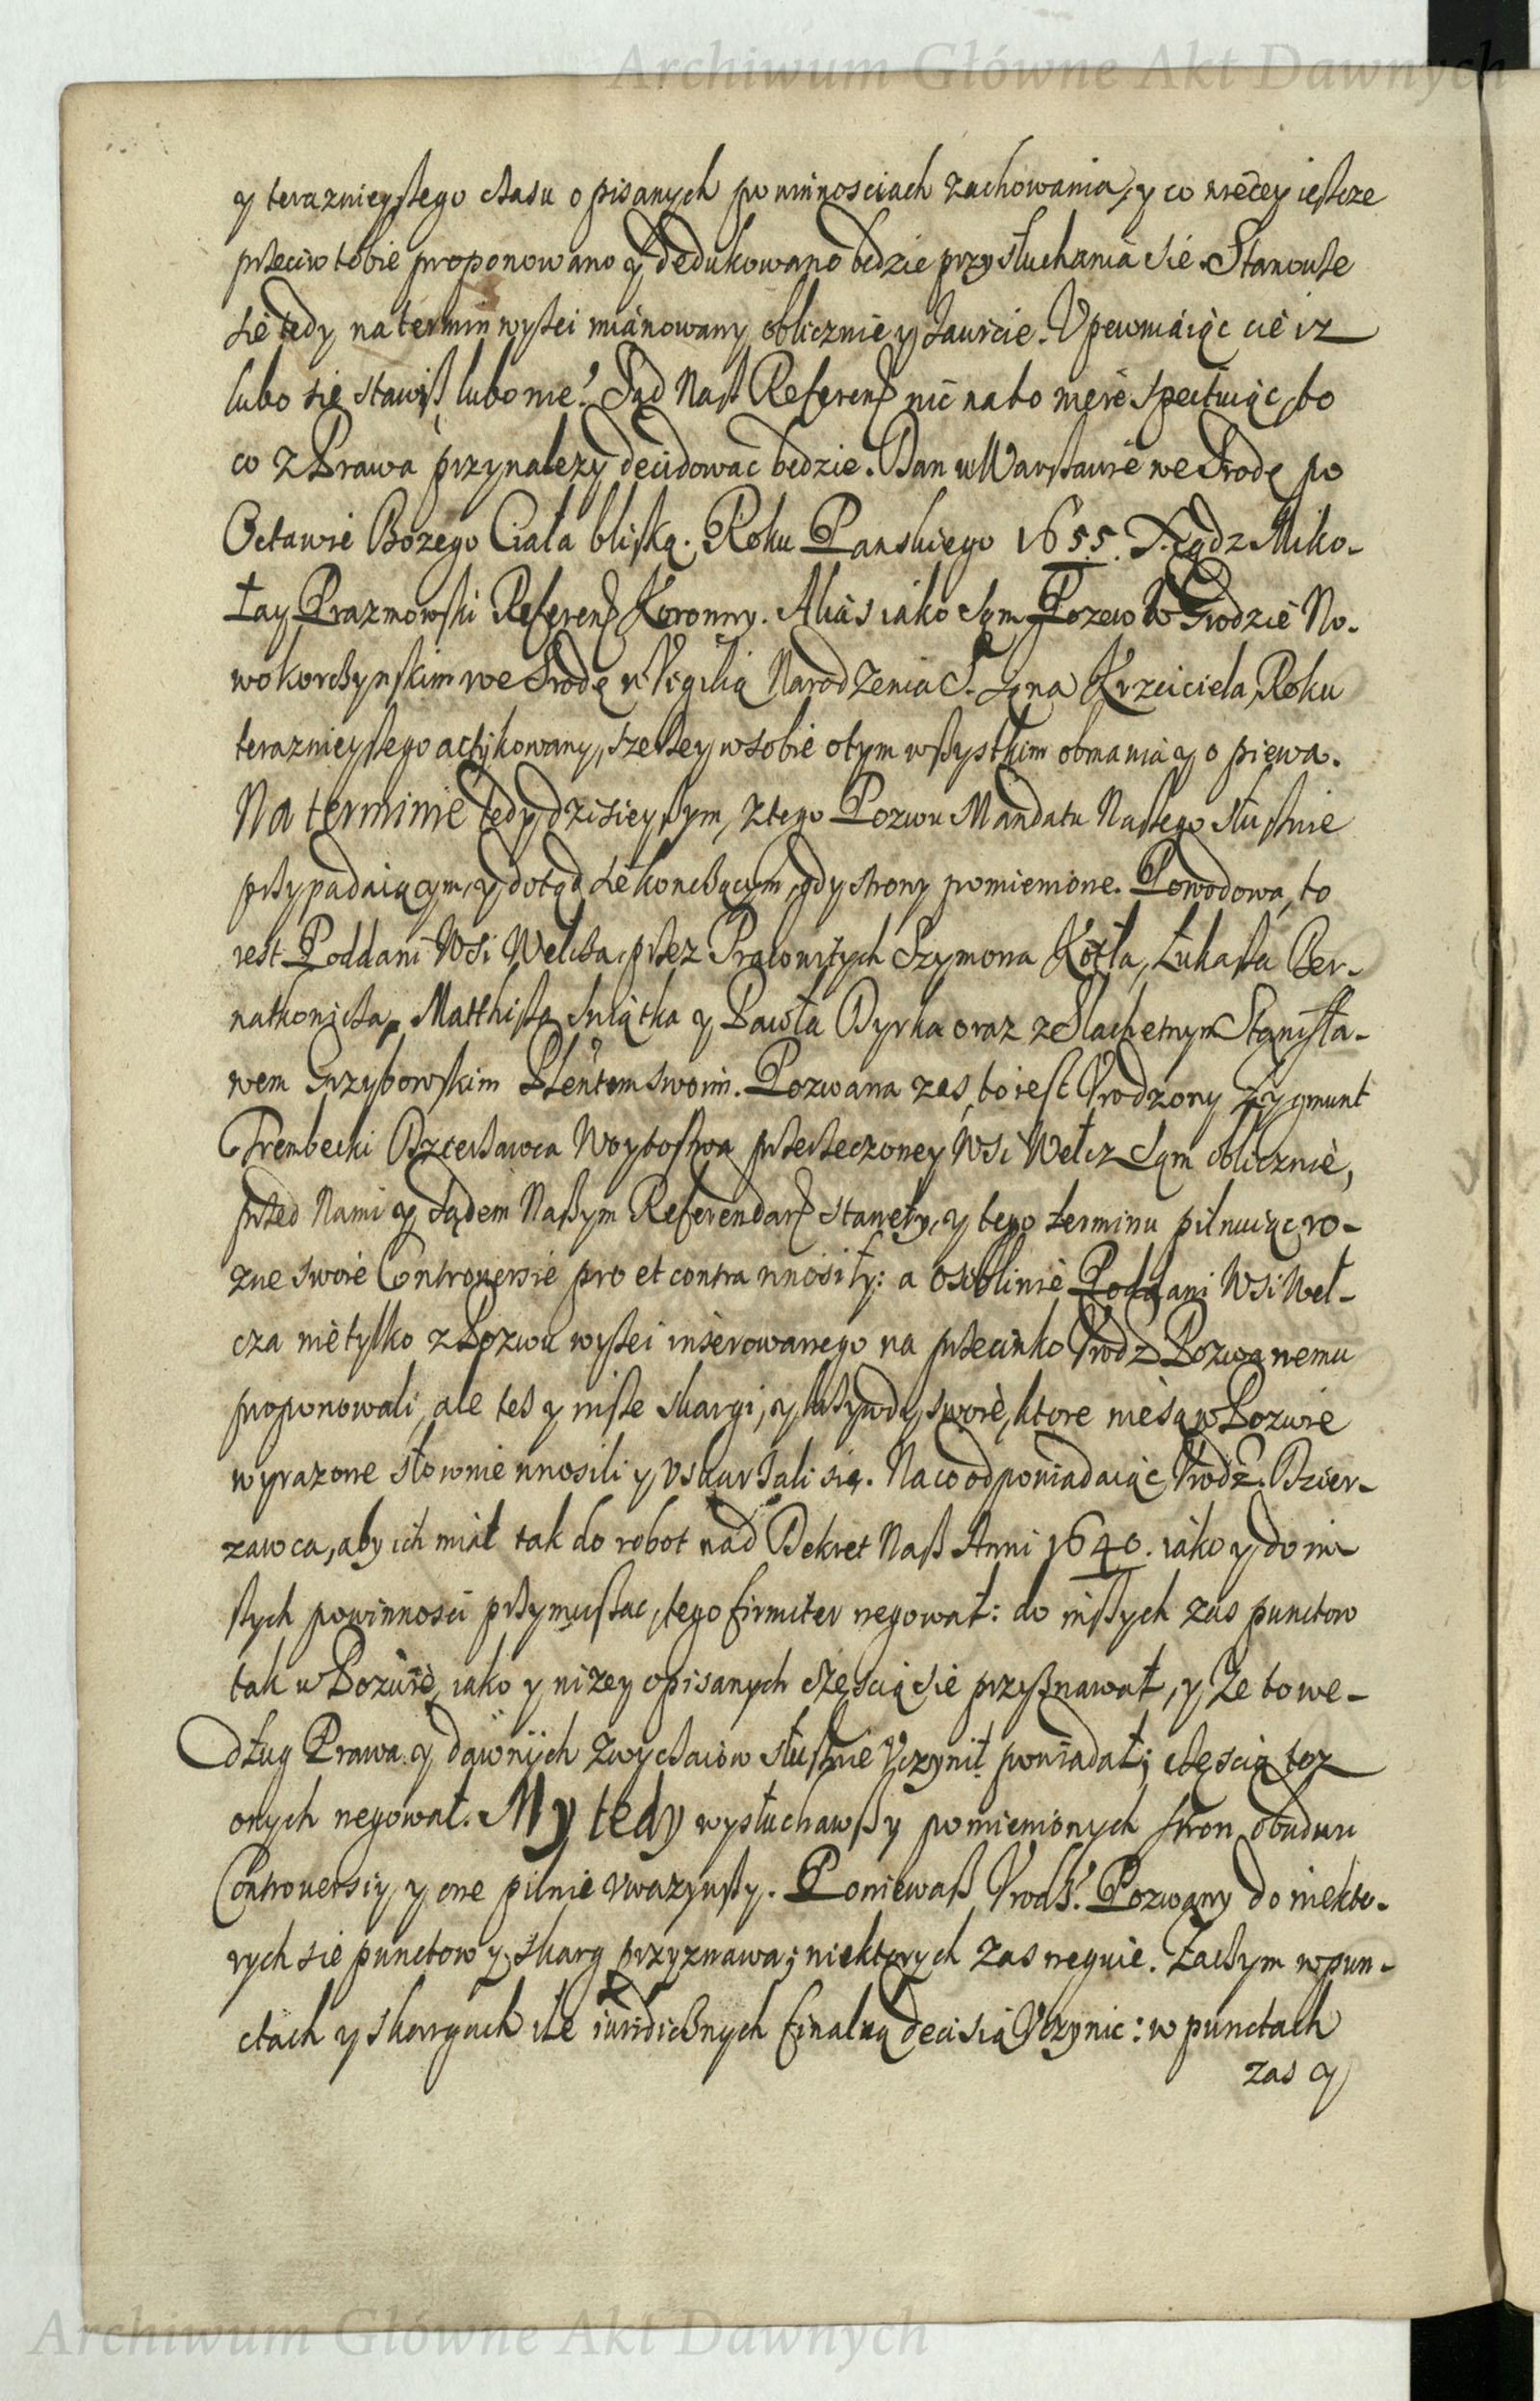 Archiwum Główne Akt Dawnych
y teraznieyßego cżasu opisanych powinnosciach zachowania, y co więcey ießcze
przeciw tobie proponowano y dedukowano będzie przysłuchania się. Stanowże
się tedy na termin wyżei mianowany oblicznie y zawicie. Vpewniaiąc cię iz
lubo się stawiß lubo nie: Sąd Naß Referenß nic na to nierespectuiąc, to
co z Prawa przynalezy decidować będzie. Dan w Warßawie we Srodę po
Octawie Bożego Ciała blißką. Roku Panskiego 1655. Xiądz Miko-
łay Prazmowski Referenß Koronny. Aliàs iako sam Pozew w Grodzie No-
wokorcżynskim we Srodę w Vigilią Narodzenia S. Jana Krzciciela, Roku
terazn­ieyßego actykowany, szerzey w sobie o tym wßystkim obmawia y opiewa.
Na terminie tedy dzisieyßym, z tego Pozwu Mandatu Naßego słußnie
przypadaiącym, y dotąd się koncżącym, gdy strony pomienione. Powodowa, to
iest Poddani Wsi Wełcża, przez Pracowitych Szymona Kotła, Łukaßa Ber-
natkowicża, Matthißa Swiątka y Pawła Dyrka oraz z Slachetnym Stanisła-
wem Grzybowskim Plentem swoim. Pozwana zas, to iest Vrodzony Zygmunt
Trembecki Dzierżawca Woytostwa przerzeczoney Wsi Wełcz sam oblicznie,
przed Nami y Sądem Naßym Referendarß stanęły, y tego terminu pilnuiąc, ro-
zne swoie Controversie pro et contra wnosiły: a osobliwie Poddani Wsi Weł-
cza nie tylko z Pozwu wyżei inserowanego na przeciwko Vrodz Pozwanemu
proponowali, ale też y inße skargi, y krzywdy swoie, ktore nie są w Pozwie
wyrazone słownie wnosili y vskarżali się. Na co odpowiadaiąc Vrodz. Dzier-
zawca, aby ich miał tak do robot nad Dekret Naß Anni 1640. iako y do in-
ßych powinnosci przymußac, tego firmiter negował: do inßych zas punctow
tak w Pozwie, iako y nizey opisanych częscią się przyznawał, y że to we-
dług Prawa y dawnych zwyczaiow słußnie vczynił powiadał; częscią tez
onych negował. My tedy wysłuchawßy pomienionych stron obudwu
Controversiy, y one pilnie vwazywßy. Poniewaß Vrodz. Pozwany do niekto-
rych się punctow y skarg przyznawa; niektorych zas neguie. Zaczym w pun-
ctach y skargach ile iuridicżnych finalną decisią vczynic: w punctach
zas y
Archiwum Główne Akt Dawnych